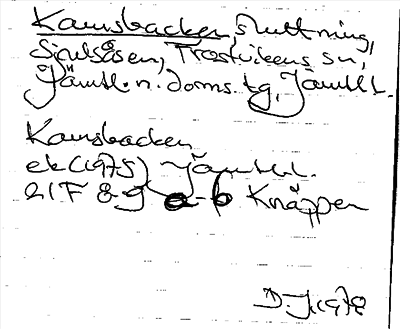 Kamsbacken, sluttning,
Sjulsåsen, Trostvikens sn,
Jämtl. n. doms. tg, Jämtl l.
Kamsbacken
ek (1975) Jämtl l.
21F 8-9 a-b Knäppen
D. J. 1978